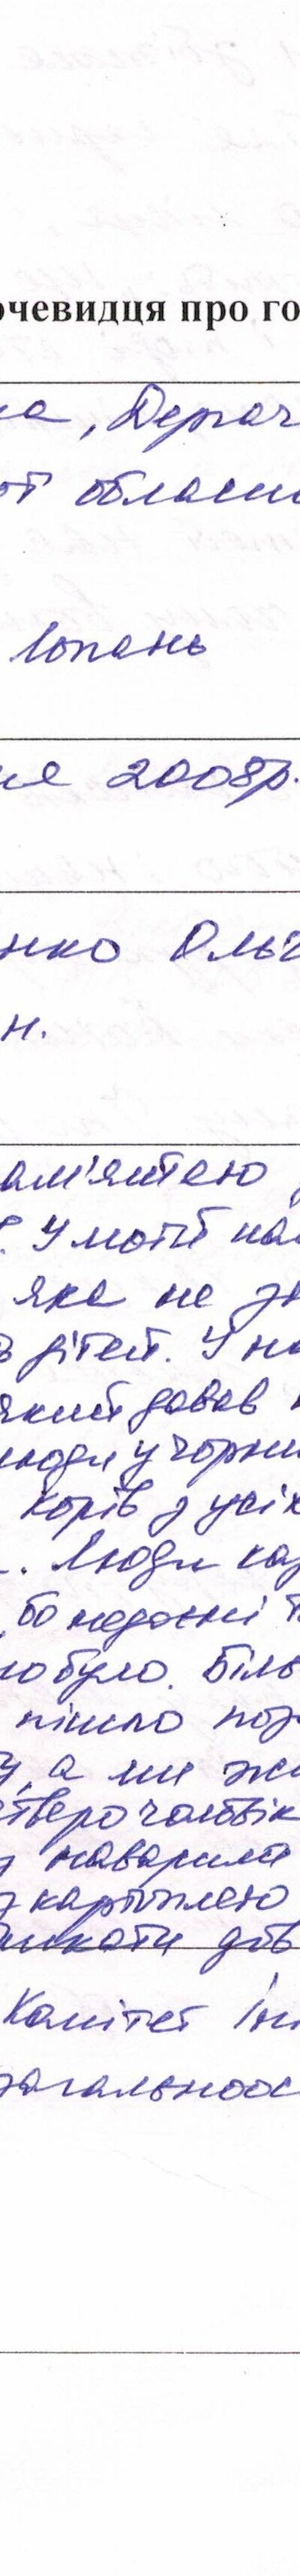 очевидця про го
ка, Дергач
от області
Лопань
ня 2008р.
нко Ольг
н.
ам'яттю
. У моїй
яка не
дітей. У на
який давав
люди у чорни
корів з усіх
. Люди каз
, бо недоєні
но було. Біль
пішло
, а ми жи
четверо чоловік
наварила
з картоплею
шкати дів
Комітет Ін
загальноос